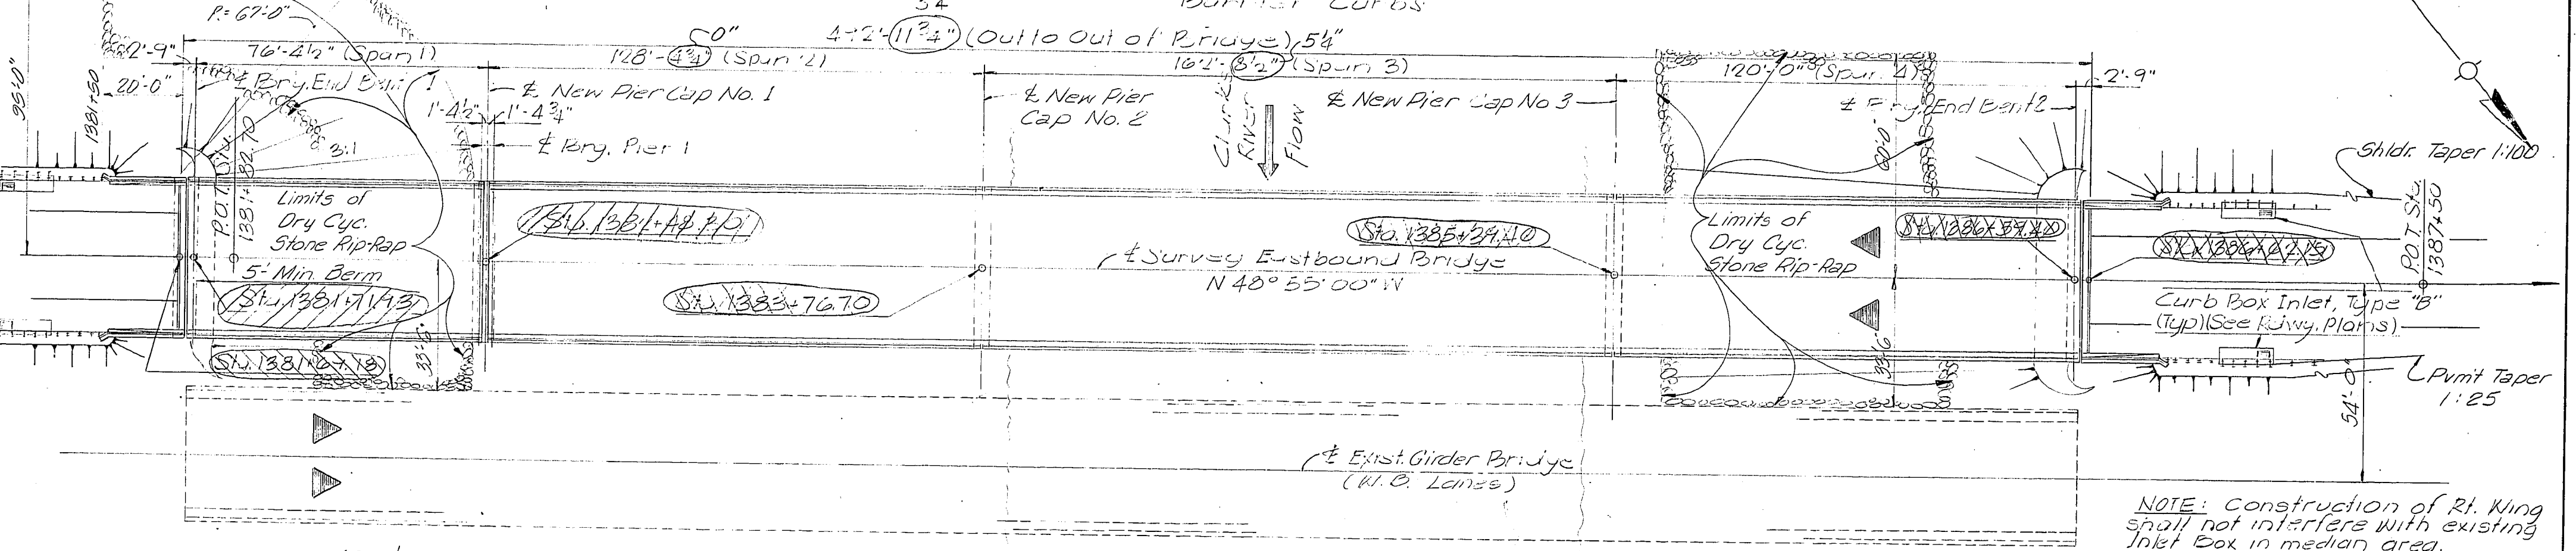 P.= 67'-0"
34
Curbs
(Out to Out of Bridge)
11¾"
5¼"
0"
2'-9"
76'-4½" (Span 1)
128'-4¾" (Span 2)
162'-8½" (Span 3)
120'-0" (Span 4)
2'-9"
95'-0"
1381+50
20'-0"
℄ Brg. End Bent 1
℄ New Pier Cap No. 1
1'-4½"
1'-4¾"
℄ Brg. Pier 1
℄ New Pier
Cap No. 2
River
Flow
℄ New Pier Cap No 3
End Bent 2
60'-0"
3:1
P.O.T. Sta.
1381+82.70
Limits of
Dry Cyc.
Stone Rip-Rap
5' Min. Berm
Sta. 1381+71.93
Sta. 1381+67.13
33'-6"
Sta. 1383+76.70
Sta. 1385+39.40
℄ Survey Eastbound Bridge
N 48° 55' 00" W
Limits of
Dry Cyc.
Stone Rip-Rap
33'-6"
Shldr. Taper 1:100
P.O.T. Sta.
1387+50
Curb Box Inlet, Type "B"
(Typ)(See Rdwy. Plans)
Pvmt Taper
1:25
54'-0"
℄ Exist. Girder Bridge
(W.B. Lanes)
NOTE: Construction of Rt. Wing
shall not interfere with existing
Inlet Box in median area.